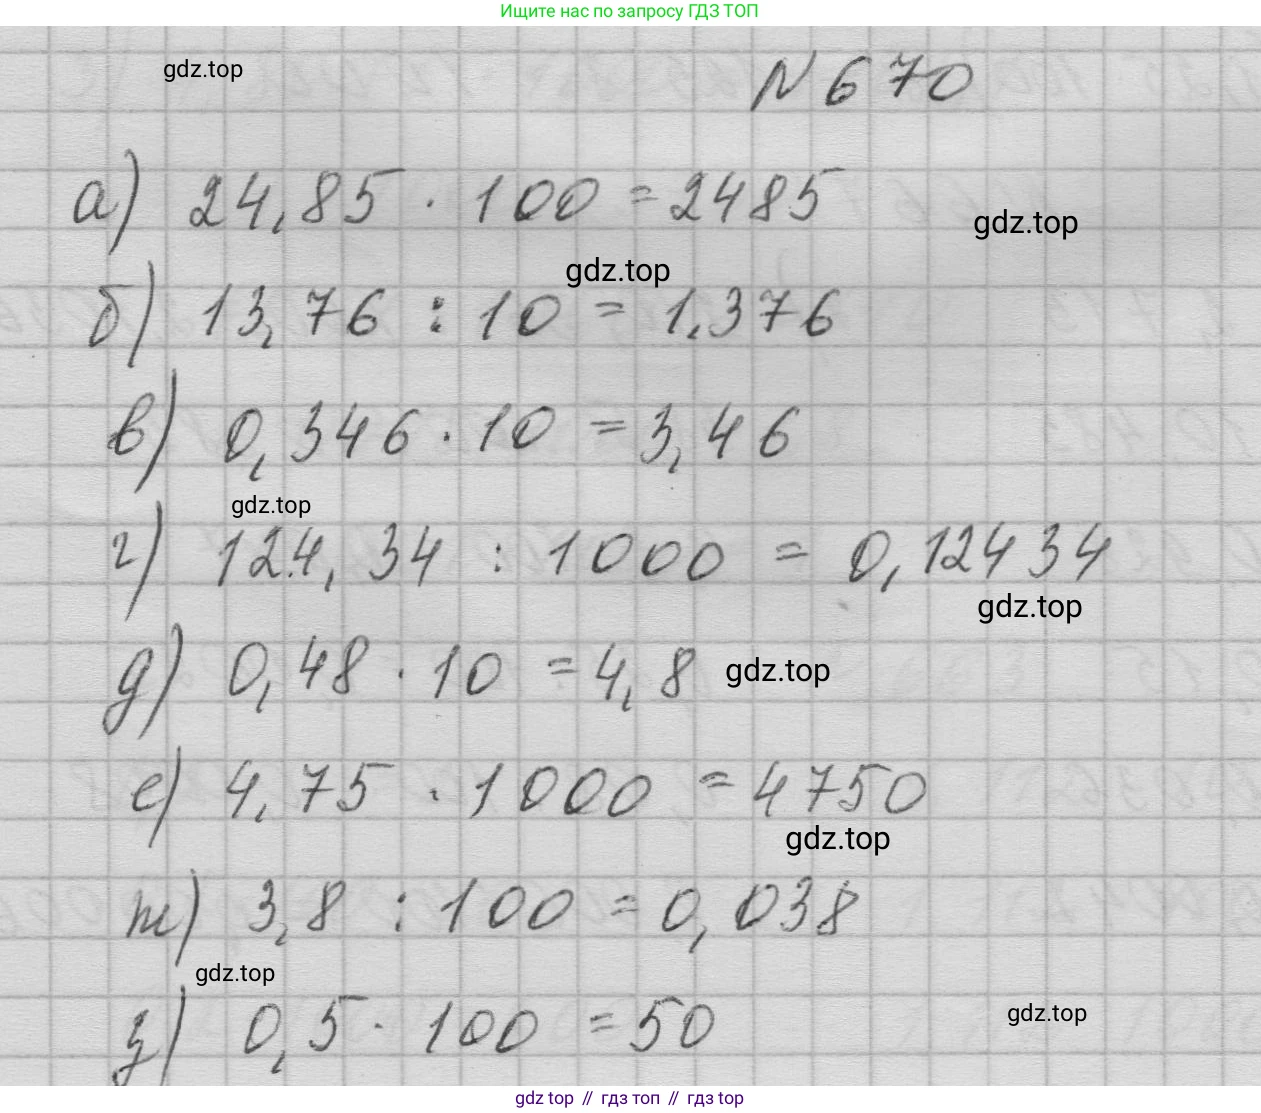 Ищите нас по запросу ГДЗ ТОП
gdz.top
N 670
а) 24,85 · 100 = 2485
gdz.top
gdz.top
б) 13,76 : 10 = 1,376
в) 0,346 · 10 = 3,46
gdz.top
г) 124,34 : 1000 = 0,12434
gdz.top
д) 0,48 · 10 = 4,8
gdz.top
е) 4,75 · 1000 = 4750
gdz.top
ж) 3,8 : 100 = 0,038
gdz.top
з) 0,5 · 100 = 50
gdz.top
gdz top // гдз топ // гдз top